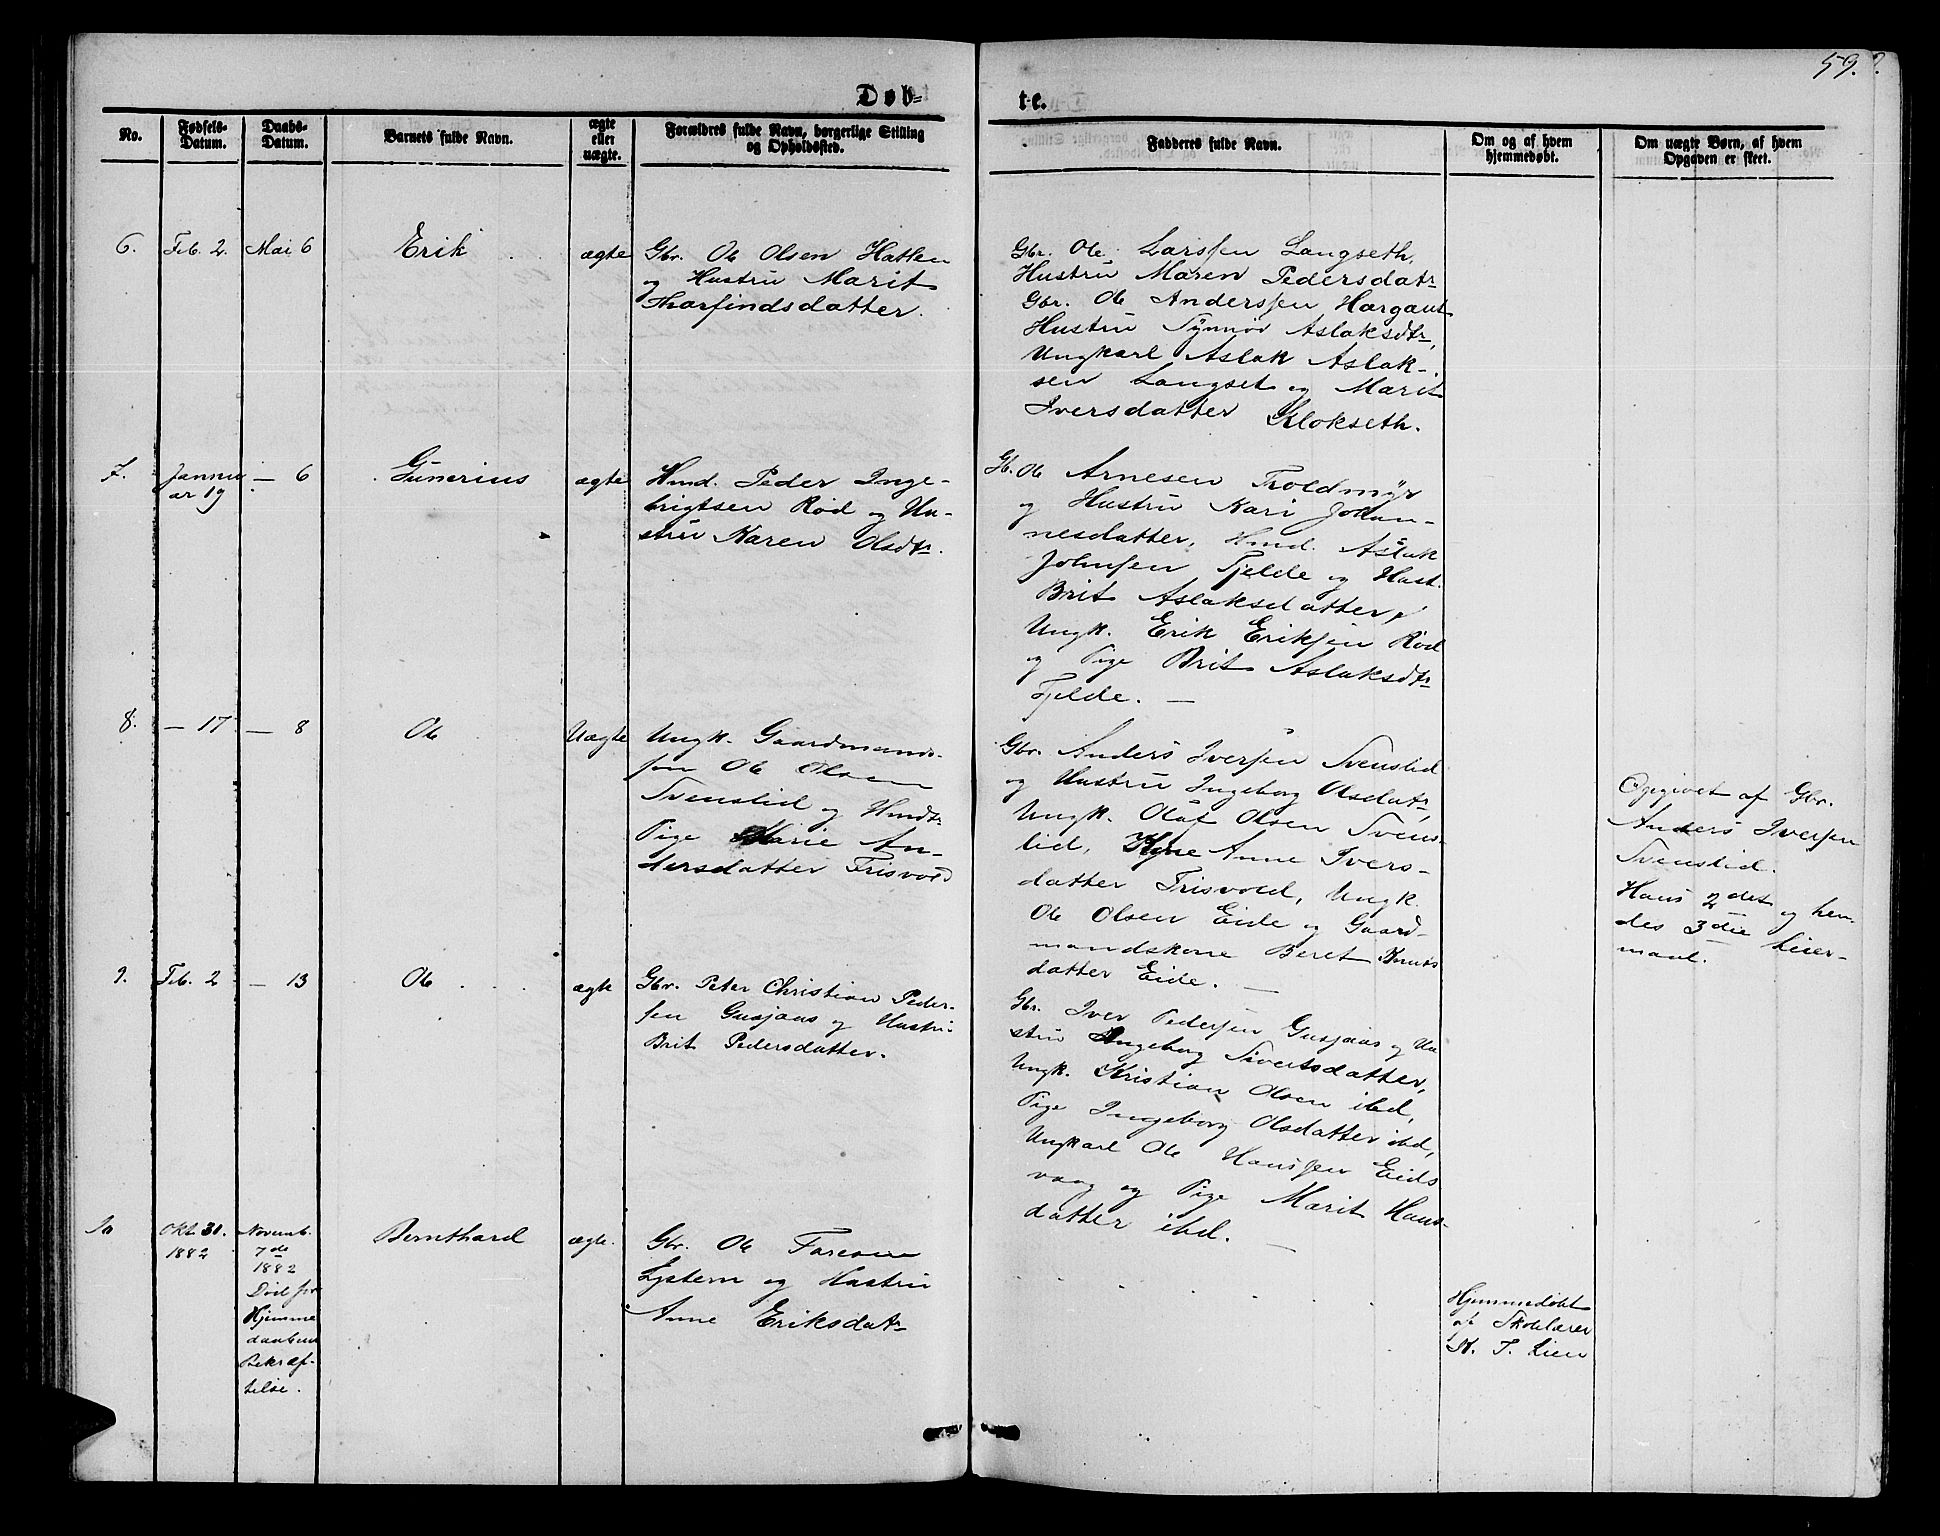 59.
Døb-
te.
No.
Fødsels-
Datum.
Daabs-
Datum.
Barnets fulde Navn.
ægte
eller
uægte.
Forældres fulde Navn, borgerlige Stilling
og Opholdssted.
Fadderes fulde Navn.
Om og af hvem
hjemmedøbt.
Om uægte Børn, af hvem
Opgaven er skeet.
6.
Feb. 2.
Mai 6
Erik
ægte
Gbr. Ole Olsen Hatlen
og Hustru Marit
Thorfindsdatter.
Gbr. Ole Larssen Langseth,
Hustru Maren Pedersdatr
Gbr. Ole Anderssen Horgaut
Hustru Synnøv Aslaksdtr,
Ungkarl Aslak Aslak-
sen Langset og Marit
Iversdatter Klokseth.
7.
Janu
ar 19
— 6
Gunerius
ægte
Hmd. Peder Inge-
brigtsen Rød og Hu-
stru Karen Olsdtr.
Gb. Ole Arnesen Troldmyr
og Hustru Kari Johan-
nesdatter, Hmd. Aslak
Johnsen Fjelde og Hust.
Brit Aslaksdatter,
Ungk. Erik Eriksen Rød
og Pige Brit Aslaksdtr
Fjelde. —
8.
— 17
— 8
Ole
Uægte
Ungk. Gaardmands-
søn Ole Olsen
Svenslid og Hmdtr
Pige Marie An-
dersdatter Frisvold
Gbr. Anders Iversen Svenslid
og Hustru Ingeborg Olsdatr,
Ungk. Olaf Olsen Svens-
lid, Anne Ivers-
datter Frisvold, Ungk.
Ole Olsen Eide og Gaard-
mandskone Beret Knuts
datter Eide. —
Opgivet af Gbr.
Anders Iversen
Svenslid.
Hans 2det og hen-
des 3die Leier-
maal.
9.
Feb. 2
— 13
Ole
ægte
Gbr. Peter Christian Peder-
sen Gusjaas og Hustru
Brit Pedersdatter.
Gbr. Iver Pedersen Gusjaas og Hu
stru Ingeborg Sivertsdatter,
Ungk. Kristian Olsen ibd,
Pige Ingeborg Olsdatter ibd,
Ungkarl Ole Hanssen Eids
vaag og Pige Marit Hans-
datter ibd. —
10
Okt. 31.
1882
Novemb.
7de
1882
Død før
Hjemme
daabens
Bekræf-
telse.
Bernthard
ægte.
Gbr. Ole
og Hustru
Anne Eriksdatr
Hjemmedøbt
af Skolelærer
T. Lien